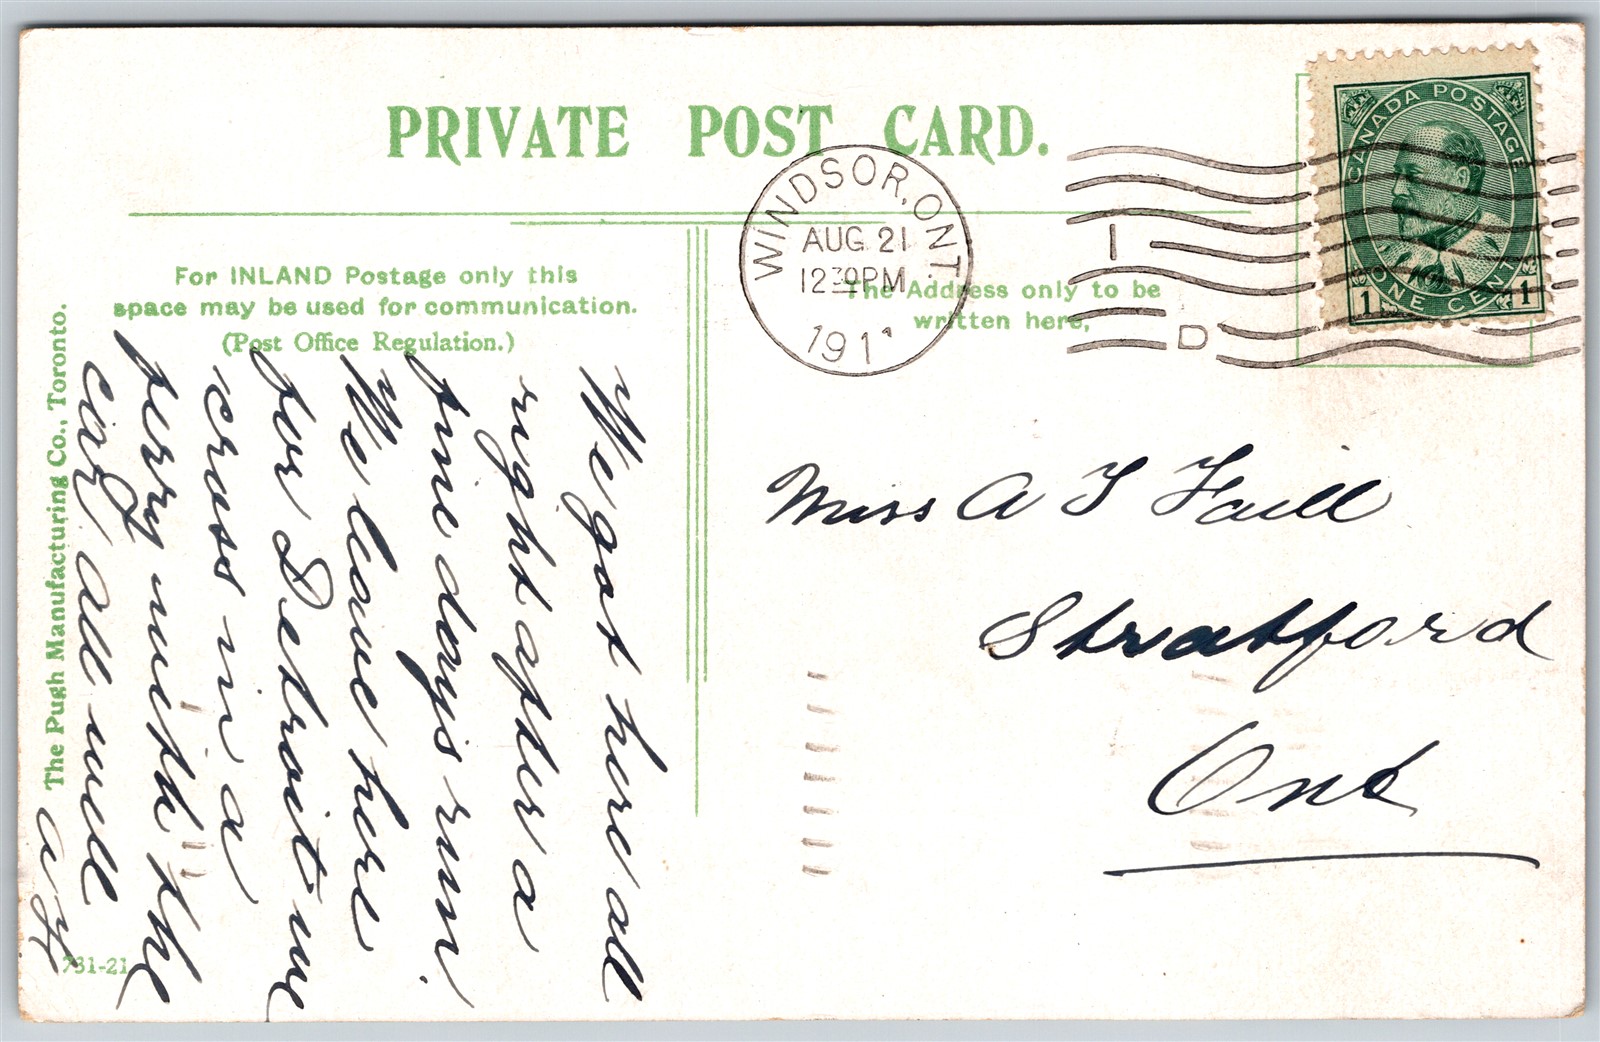 PRIVATE POST CARD.
WINDSOR, ONT.
AUG 21
12 30 PM
191
1
D
CANADA POSTAGE
ONE CENT
1 1
For INLAND Postage only this
space may be used for communication.
(Post Office Regulation.)
The Address only to be
written here,
The Pugh Manufacturing Co., Toronto.
731-21
We got here all
right after a
fine days run
We leave here
for Detroit we
cross in a
ferry with the
car, all well
Miss A T Faill
Stratford
Ont